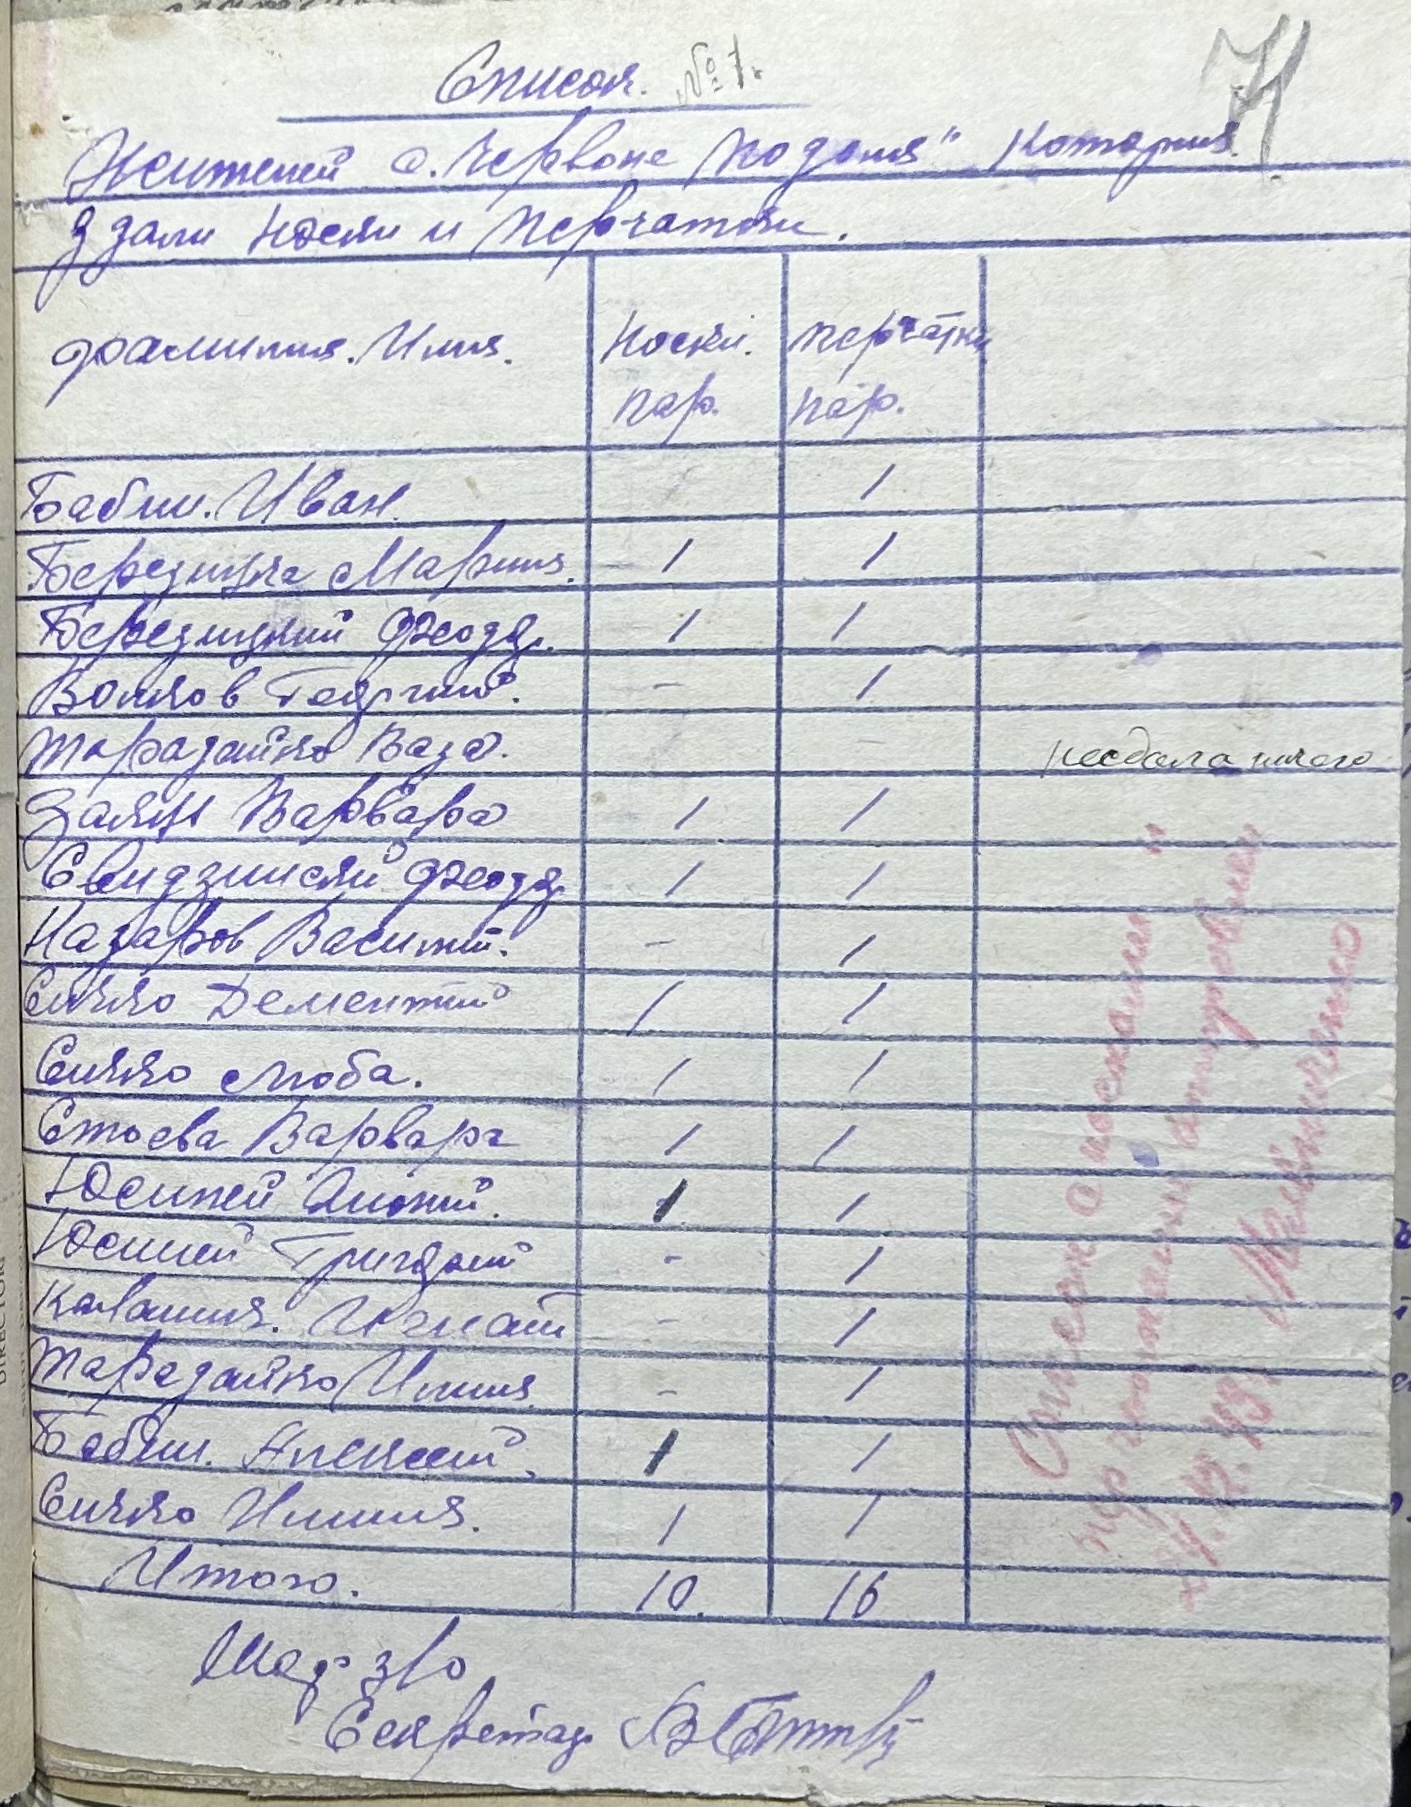 Список. № 1.
71
Жителей с. Червоне Подоля" которыя
здали носки и перчатки.
фамилия. Имя. Носки. пар. перчатки пар.
Бабич. Иван. 1
Березицка Мария. 1 1
Березицкий Феодр. 1 1
Волков Георгий. - 1
Тарадайко Ваза. несдала ничего
Заяц Варвара 1 1
Свидзинский Феодр. 1 1
Назаров Василий. - 1
Сичко Дементий 1 1
Сичко Люба. 1 1
Стоева Варвара 1 1
Юсипей 1 1
Юсипей Григорий - 1
Калашик. Игнат - 1
Тарадайко Илия. - 1
Бабич. Алексей. 1 1
Сичко Илия. 1 1
Итого. 10. 16
Секретар
Список с носками и
перчатками отправлен